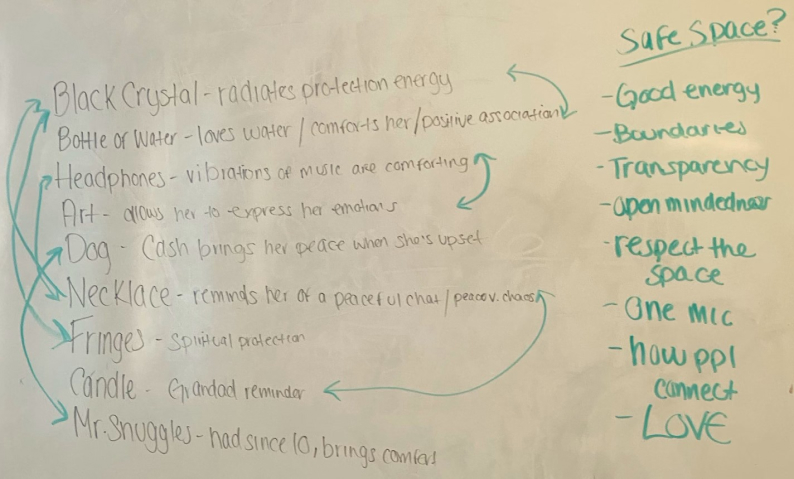 Black Crystal - radiates protection energy
Bottle of Water - loves water / comforts her / positive association
Headphones - vibrations of music are comforting
Art - allows her to express her emotions
Dog - Cash brings her peace when she's upset
Necklace - reminds her of a peaceful chat / peace v. chaos
Fringes - spiritual protection
Candle - Grandad reminder
Mr. Snuggles - had since 10, brings comfort
Safe Space?
- Good energy
- Boundaries
- Transparency
- open mindedness
- respect the
space
- one mic
- how ppl
connect
- LOVE